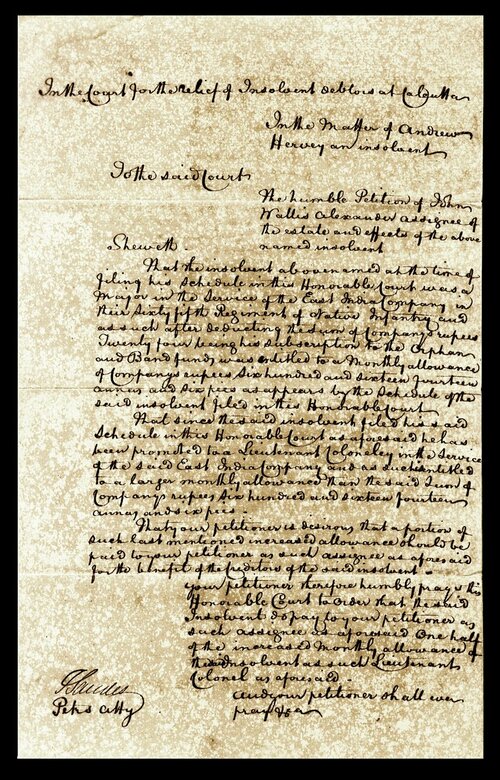 In the Court for the relief of Insolvent debtors at Calcutta
In the Matter of Andrew
Hervey an insolvent
To the said Court
The humble Petition of John
Wallis Alexander assignee of
the estate and effects of the above
named insolvent
Sheweth.
That the insolvent abovenamed at the time of
filing his Schedule in this Honorable Court was a
Major in the Service of the East India Company in
their Sixty fifth Regiment of Native Infantry and
as such after deducting the sum of Companys rupees
Twenty four being his subscription to the Orphan
and Band funds was entitled to a Monthly allowance
of Companys rupees Six hundred and sixteen fourteen
annas and Six pees as appears by the Schedule of the
said insolvent filed in this Honorable Court
That since the said insolvent filed his said
Schedule in this Honorable Court as aforesaid he has
been promoted to a Lieutenant Colonelcy in the Service
of the said East India Company and as such entitled
to a larger monthly allowance than the said Sum of
Companys rupees Six hundred and sixteen fourteen
annas and six pees.
That your petitioner is desirous that a portion of
such last mentioned increased allowance should be
paid to your petitioner as such assignee as aforesaid
for the benefit of the Creditors of the said insolvent.
your petitioner therefore humbly prays this
Honorable Court to Order that the said
Insolvent do pay to your petitioner as
such assignee as aforesaid One half
of the increased Monthly allowance of
the said Insolvent as such Lieutenant
Colonel as aforesaid.
And your petitioner shall ever
pray &ca
Petrs atty